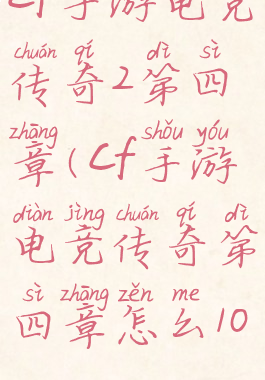 cf手游电竞
chuán qí dì sì
传奇2第四
zhāng shǒu yóu
章(cf手游
diàn jìng chuán qí dì
电竞传奇第
sì zhāng zěn me
四章怎么10